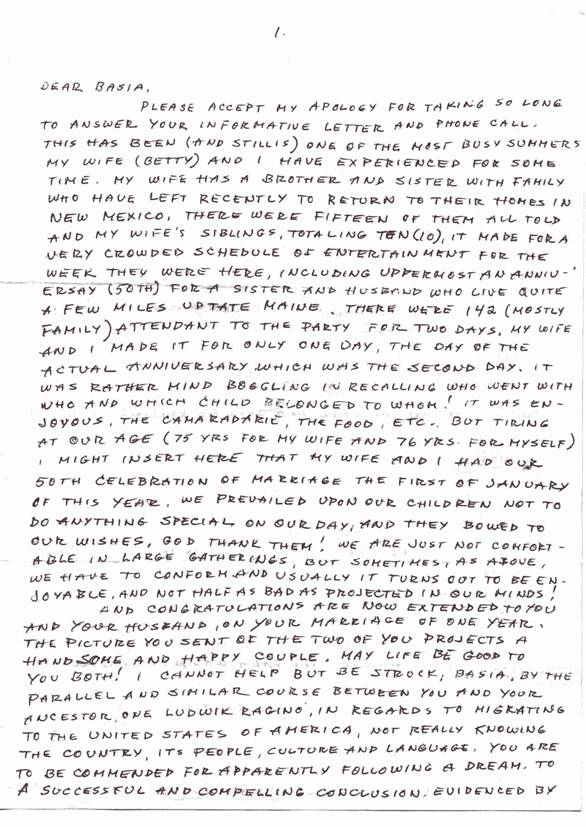 1.
DEAR BASIA,
PLEASE ACCEPT MY APOLOGY FOR TAKING SO LONG
TO ANSWER YOUR INFORMATIVE LETTER AND PHONE CALL.
THIS HAS BEEN (AND STILL IS) ONE OF THE MOST BUSY SUMMERS
MY WIFE (BETTY) AND I HAVE EXPERIENCED FOR SOME
TIME. MY WIFE HAS A BROTHER AND SISTER WITH FAMILY
WHO HAVE LEFT RECENTLY TO RETURN TO THEIR HOMES IN
NEW MEXICO, THERE WERE FIFTEEN OF THEM ALL TOLD
AND MY WIFE'S SIBLINGS, TOTALING TEN (10), IT MADE FOR A
VERY CROWDED SCHEDULE OF ENTERTAINMENT FOR THE
WEEK THEY WERE HERE, INCLUDING UPPERMOST AN ANNIV-
ERSAY (50TH) FOR A SISTER AND HUSBAND WHO LIVE QUITE
A FEW MILES UPTATE MAINE. THERE WERE 142 (MOSTLY
FAMILY) ATTENDANT TO THE PARTY FOR TWO DAYS. MY WIFE
AND I MADE IT FOR ONLY ONE DAY, THE DAY OF THE
ACTUAL ANNIVERSARY WHICH WAS THE SECOND DAY. IT
WAS RATHER MIND BOGGLING IN RECALLING WHO WENT WITH
WHO AND WHICH CHILD BELONGED TO WHOM! IT WAS EN-
JOYOUS, THE CAMARADARIE, THE FOOD, ETC.. BUT TIRING
AT OUR AGE (75 YRS FOR MY WIFE AND 76 YRS. FOR MYSELF)
I MIGHT INSERT HERE THAT MY WIFE AND I HAD OUR
50TH CELEBRATION OF MARRIAGE THE FIRST OF JANUARY
OF THIS YEAR. WE PREVAILED UPON OUR CHILDREN NOT TO
DO ANYTHING SPECIAL ON OUR DAY, AND THEY BOWED TO
OUR WISHES, GOD THANK THEM! WE ARE JUST NOT COMFORT-
ABLE IN LARGE GATHERINGS, BUT SOMETIMES, AS ABOVE,
WE HAVE TO CONFORM AND USUALLY IT TURNS OUT TO BE EN-
JOYABLE, AND NOT HALF AS BAD AS PROJECTED IN OUR MINDS!
AND CONGRATULATIONS ARE NOW EXTENDED TO YOU
AND YOUR HUSBAND, ON YOUR MARRIAGE OF ONE YEAR.
THE PICTURE YOU SENT OF THE TWO OF YOU PROJECTS A
HANDSOME AND HAPPY COUPLE. MAY LIFE BE GOOD TO
YOU BOTH! I CANNOT HELP BUT BE STRUCK, BASIA, BY THE
PARALLEL AND SIMILAR COURSE BETWEEN YOU AND YOUR
ANCESTOR, ONE LUDWIK RAGINO, IN REGARDS TO MIGRATING
TO THE UNITED STATES OF AMERICA, NOT REALLY KNOWING
THE COUNTRY, ITS PEOPLE, CULTURE AND LANGUAGE. YOU ARE
TO BE COMMENDED FOR APPARENTLY FOLLOWING A DREAM. TO
A SUCCESSFUL AND COMPELLING CONCLUSION. EVIDENCED BY